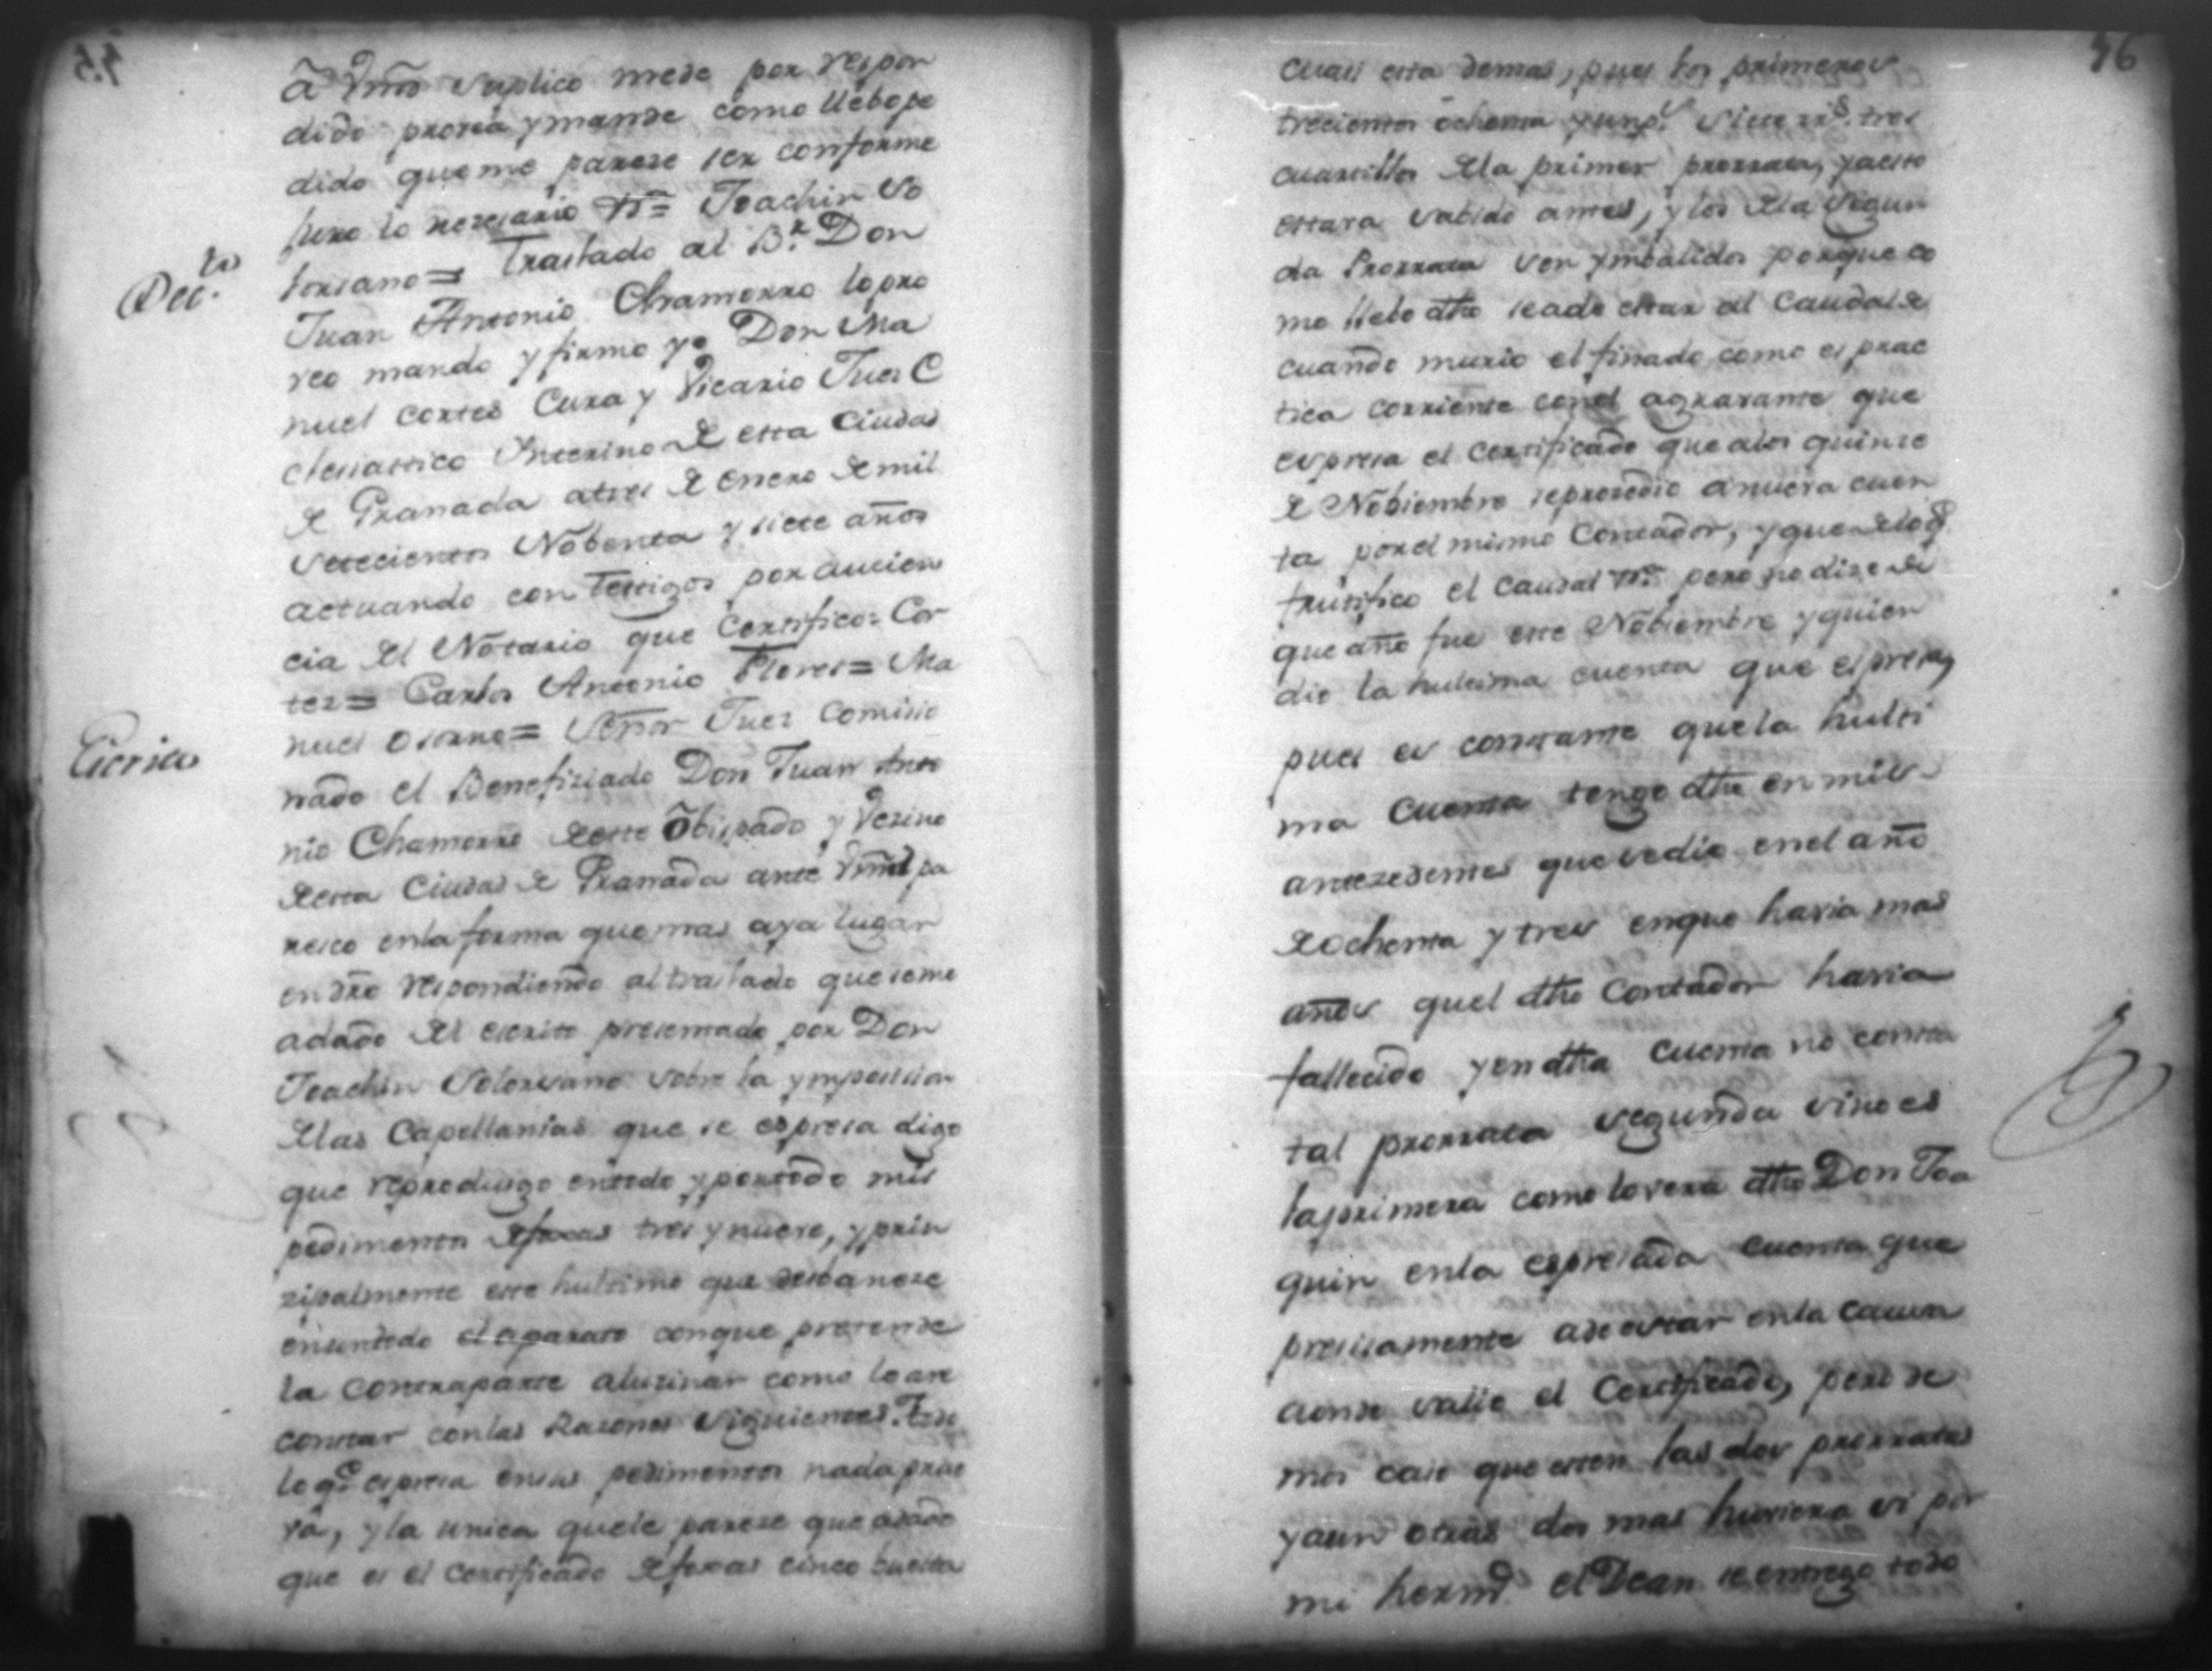 â Vmd Suplico mede por respon
dido provea y mande como llebo pe
dido que me parese ser conforme
juro lo nezesario &ra = Joachin So
Dec.to
lorsano = Traslado al B.r Don
Juan Antonio Chamorro lo pro
veo mando y firmo yo Don Ma
nuel Cortes Cura y Vicario Jues E
clesiastico Ynterino de esta Ciudad
de Granada a tres de enero de mil
setecientos Nobenta y siete años
actuando con Testigos por ausien
cia del Notario que Certifico = Cor
tez = Carlos Antonio Flores = Ma
Escrito
nuel Osorno = Señor Juez Comisio
nado el Benefiziado Don Juan Anto
nio Chamorro de este Obispado y Vezino
de esta Ciudad de Granada ante Vmd pa
resco en la forma que mas aya lugar
en dro respondiendo al traslado que seme
a dado del escrito presentado por Don
Joachin Solorsano sobre la ymposision
de las Capellanias que se espresa digo
que reproduzgo en todo y por todo mis
pedimentos de foxas tres y nueve, y prin
zipalmente este hultimo que desbaneze
en un todo el aparato con que pretende
la contraparte aluzinar como lo are
constar con las Razones siguientes.
lo q.e espresa en sus pedimentos nada prue
va, y la unica que le parese que añade
que es el certificado de foxas cinco buelta
56
cuasi esta demas, pues los primeros
trecientos ochenta y un p.s siete rr.s tres
cuartillos de la primer prorrata, ya esto
estara sabido antes, y los de la Segun
da Prorrata son ymbalidos porque co
mo llebo dho se a de estar al Caudal de
cuando murio el finado como es prac
tica corriente con el agravante que
espresa el certificado que a los quinse
de Nobiembre se prosedio a nueva cuen
ta por el mismo Contador, y que de lo q.e
frutifico el Caudal &ra pero no dize de
que año fue este Nobiembre y quien
dio la hultima cuenta que espresa,
pues es constante que la hulti
ma Cuenta tengo dho en mis
antezedentes que se dio en el año
de ochenta y tres en que havia mas
años quel dho Contador havia
fallecido y en dha Cuenta no consta
tal prorrata segunda sino es
la primera como lo vera dho Don Joa
quin en la espresada cuenta que
presisamente a de estar en la Causa
donde salio el Certificado, pero de
mos caso que esten las dos prorratas
y aun otras dos mas huviera si por
mi herm.o el Dean se entrego todo